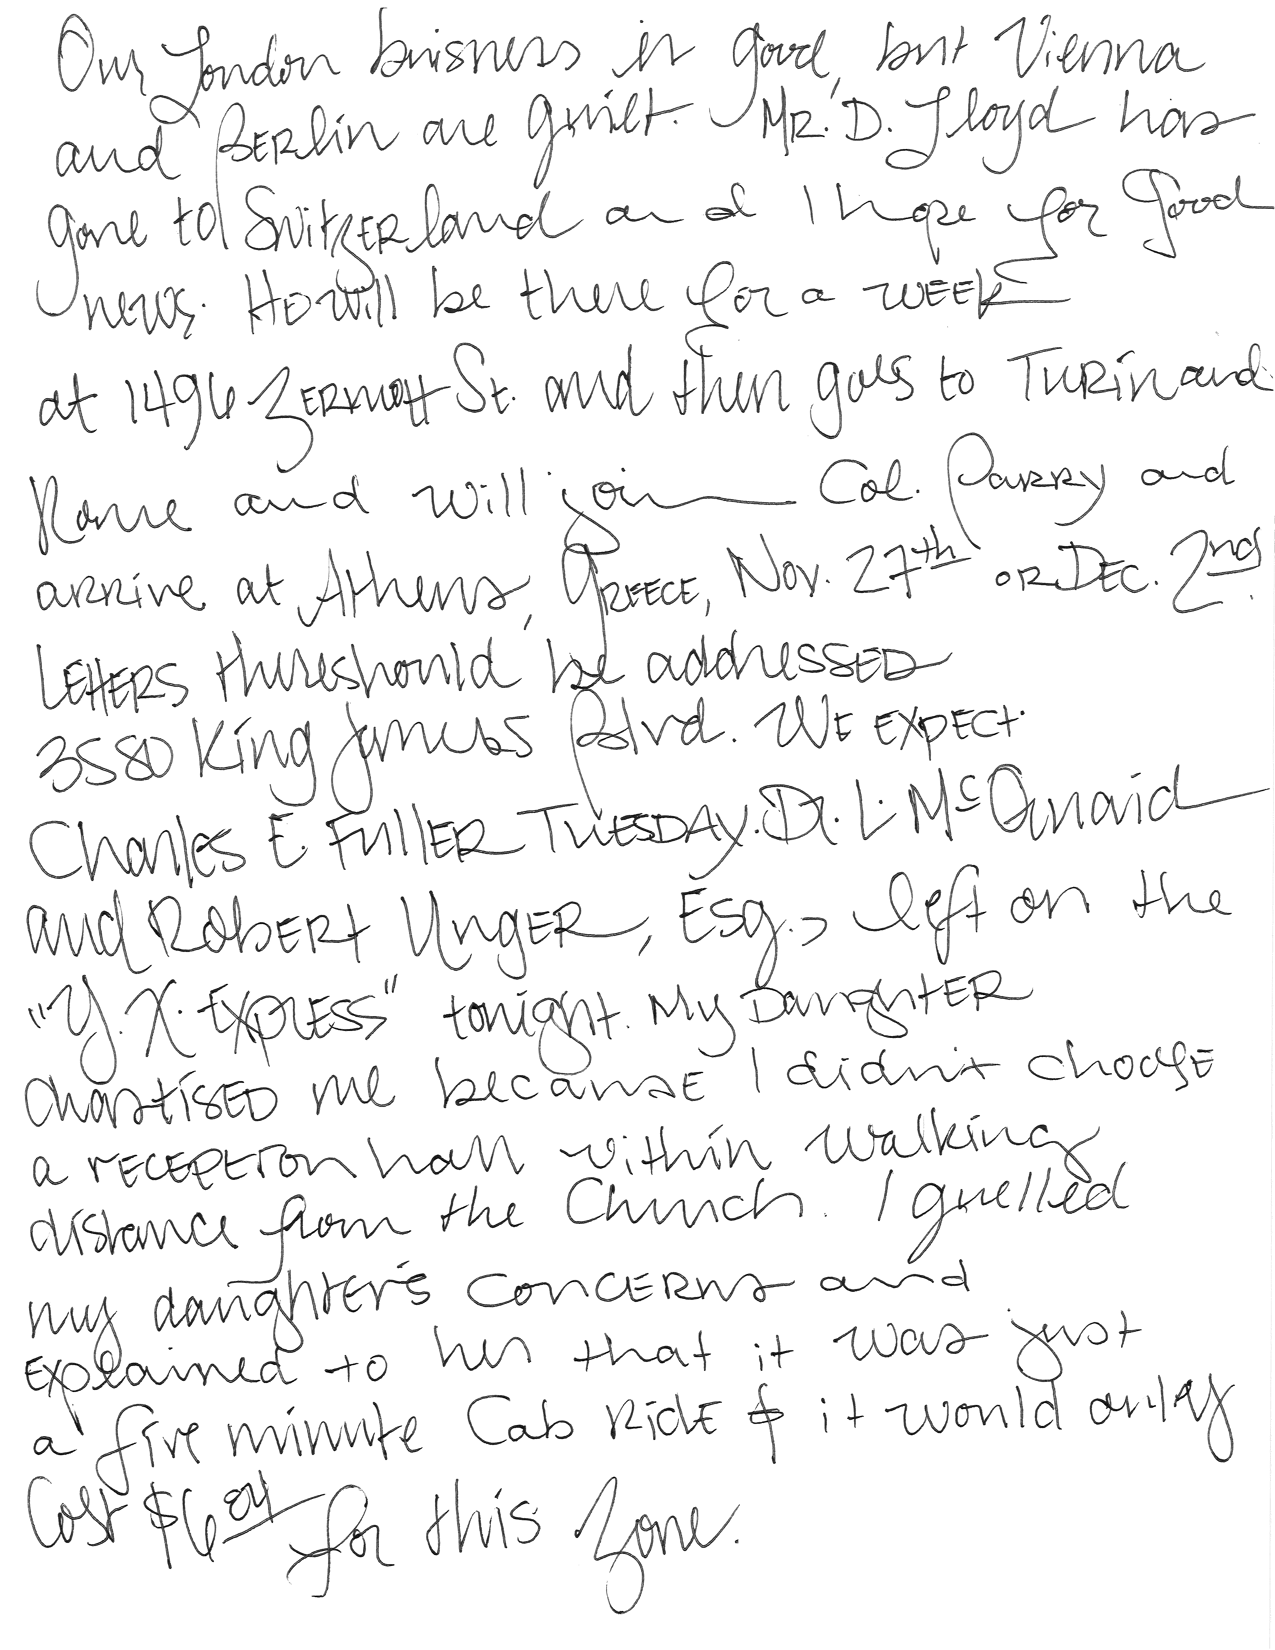 Our London buisness is good, but Vienna
and Berlin are quiet. Mr. D. Lloyd has
gone to Switzerland and I hope for good
news. He will be there for a week
at 1496 Zermott St. and then goes to Turin and
Rome and will join Col. Parry and
arrive at Athens, Greece, Nov. 27th or Dec. 2nd.
Letters there should be addressed
3580 King James Blvd. We expect
Charles E. Fuller Tuesday. Dr. L. McQuaid
and Robert Unger, Esq., left on the
"Y. X. Express" tonight. My Daughter
chastised me because I didn't choose
a reception hall within walking
distance from the Church. I quelled
my daughter's concerns and
explained to her that it was just
a five minute Cab Ride & it would only
Cost $6.04 for this zone.